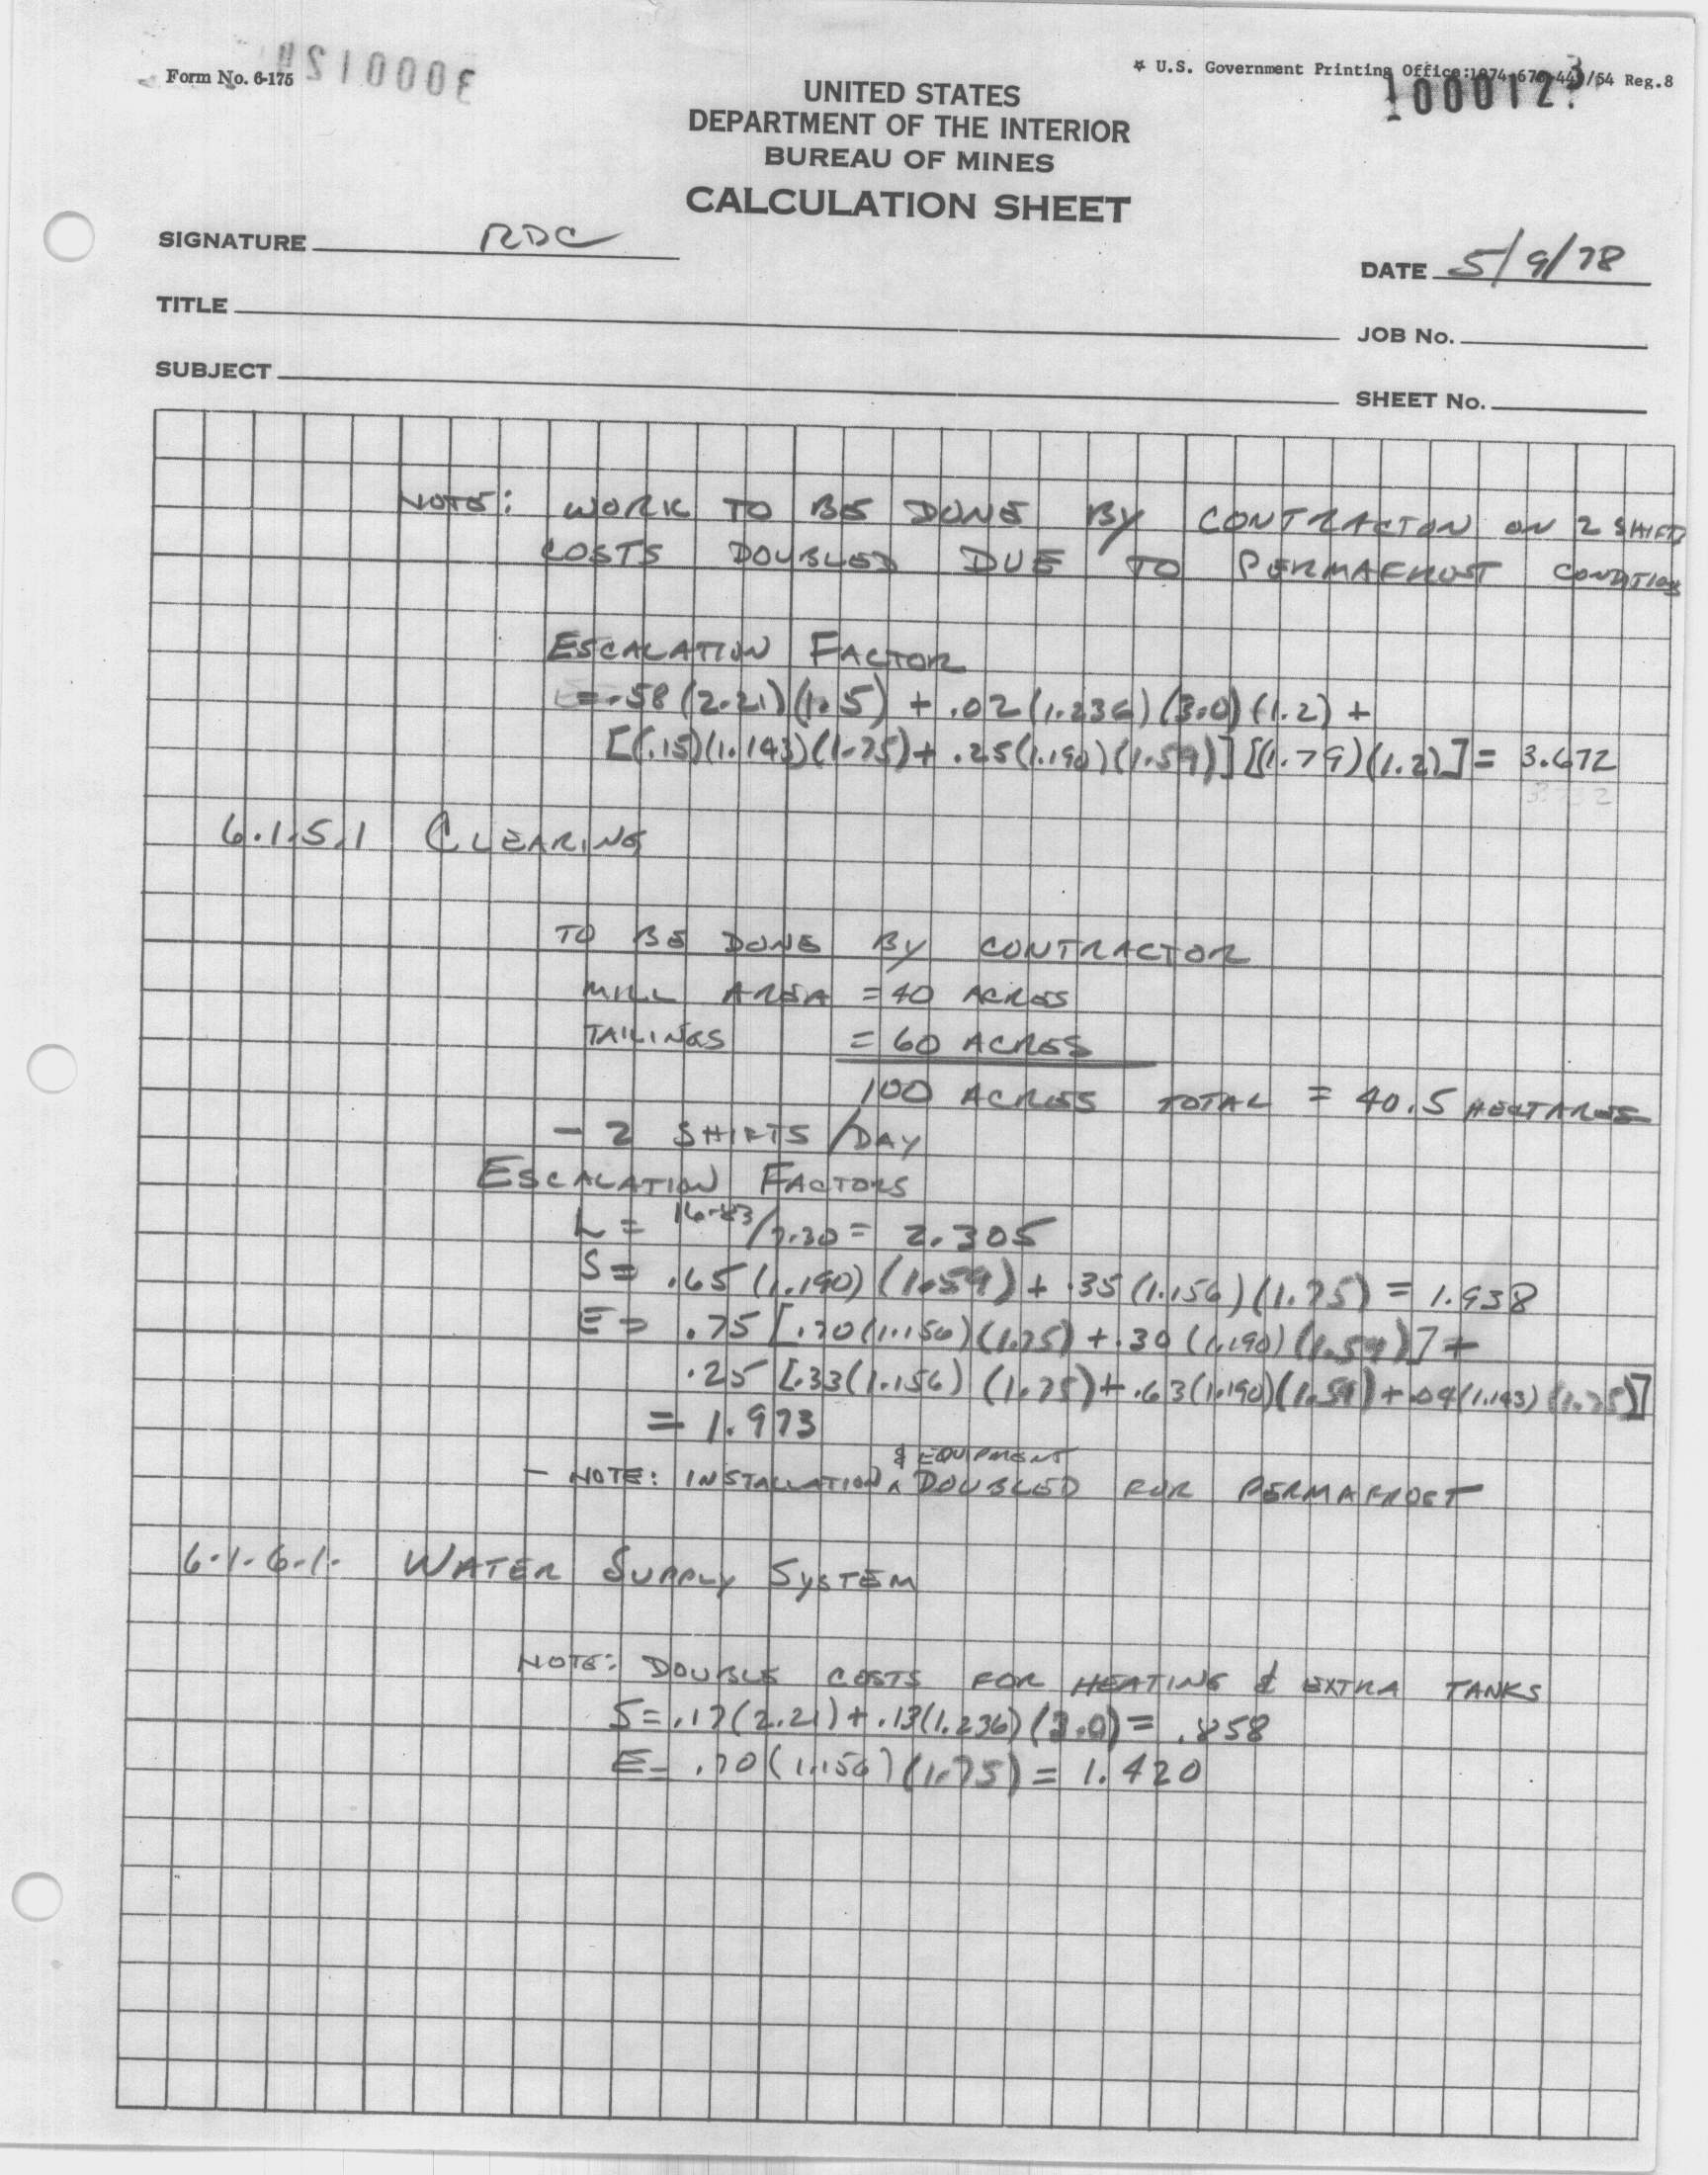 Form No. 6-175
* U.S. Government Printing Office:1974-677-449/54 Reg.8
100012
UNITED STATES
DEPARTMENT OF THE INTERIOR
BUREAU OF MINES
CALCULATION SHEET
SIGNATURE RDC
DATE 5/9/78
TITLE
JOB No.
SUBJECT
SHEET No.
NOTE: WORK TO BE DONE BY CONTRACTOR ON 2 SHIFTS
COSTS DOUBLED DUE TO PERMAFROST CONDITIONS
ESCALATION FACTOR
= .58 (2.21)(1.5) + .02 (1.236)(3.0)(1.2) +
[(.15)(1.143)(1.75) + .25(1.190)(1.59)] [(1.79)(1.2)] = 3.672
6.1.5.1 CLEARING
TO BE DONE BY CONTRACTOR
MILL AREA = 40 ACRES
TAILINGS = 60 ACRES
100 ACRES TOTAL = 40.5 HECTARES
- 2 SHIFTS /DAY
ESCALATION FACTORS
L = 16.83/7.30 = 2.305
S = .65 (1.190) (1.59) + .35 (1.156) (1.75) = 1.938
E = .75 [.70(1.156)(1.75) + .30 (1.190) (1.59)] +
.25 [.33(1.156) (1.75) + .63(1.190)(1.59) + .04(1.143) (1.75)]
= 1.973
- NOTE: INSTALLATION & EQUIPMENT DOUBLED FOR PERMAFROST
6.1.6.1. WATER SUPPLY SYSTEM
NOTE: DOUBLE COSTS FOR HEATING & EXTRA TANKS
S = .17(2.21) + .13(1.236) (3.0) = .858
E = .70 (1.156) (1.75) = 1.420